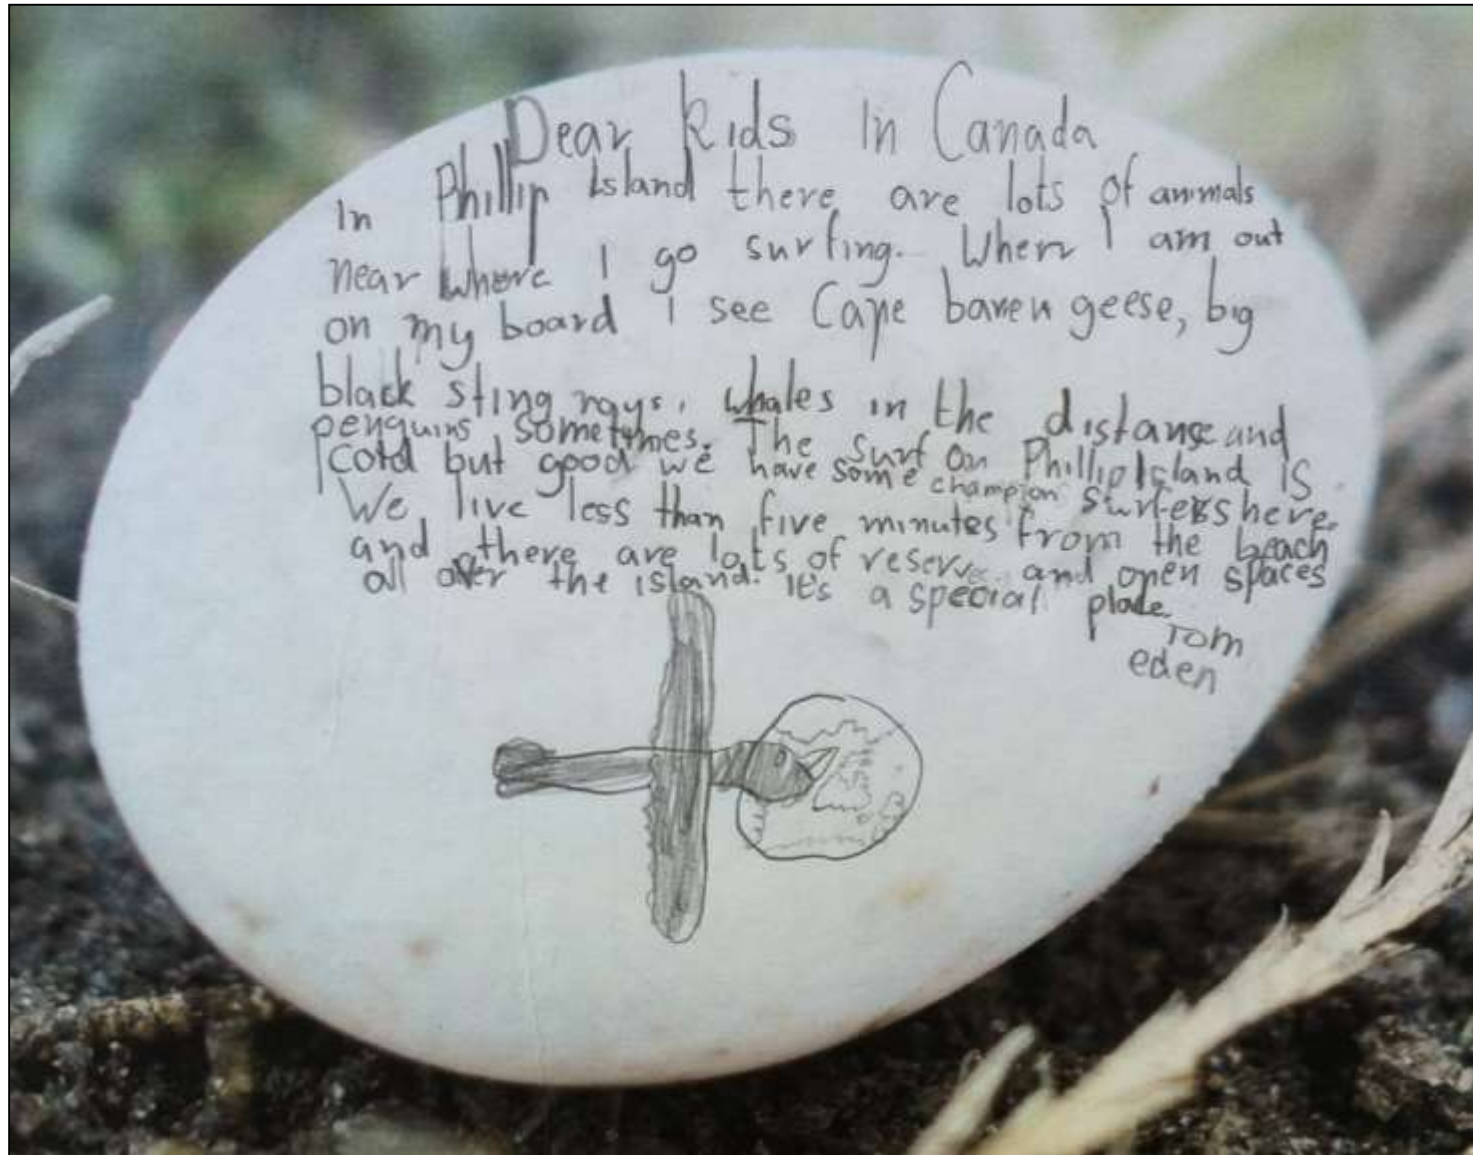 Dear kids In Canada
In Phillip Island there are lots of animals
near where I go surfing. When I am out
on my board I see Cape baren geese, big
black sting rays, whales in the distance and
penguins sometimes. The surf on Phillip Island is
cold but good we have some champion surfers here.
We live less than five minutes from the beach
and there are lots of reserve and open spaces
all over the island. It's a special place.
Tom
eden